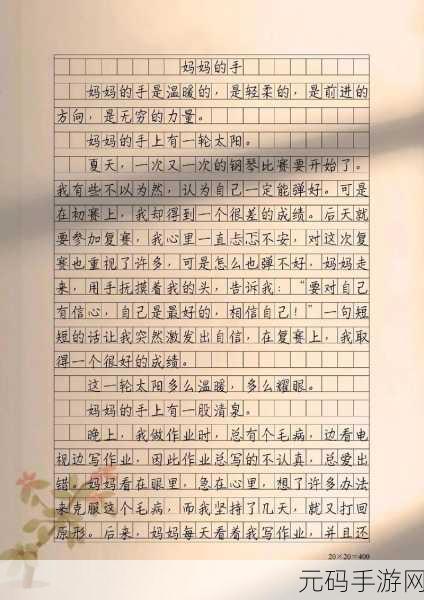 妈妈的手
妈妈的手是温暖的，是轻柔的，是前进的
方向，是无穷的力量。
妈妈的手上有一轮太阳。
夏天，一次又一次的钢琴比赛要开始了。
我有些不以为然，认为自己一定能弹好。可是
在初赛上，我却得到一个很差的成绩。后天就
要参加复赛，我心里一直忐忑不安，对这次复
赛也重视了许多，可是怎么也弹不好，妈妈走
来，用手抚摸着我的头，告诉我：“要对自己
有信心，自己是最好的，相信自己！”一句短
短的话让我突然激发出自信，在复赛上，我取
得一个很好的成绩。
这一轮太阳多么温暖，多么耀眼。
妈妈的手上有一股清泉。
晚上，我做作业时，总有个毛病，边看电
视边写作业，因此作业总写的不认真，总爱出
错。妈妈看在眼里，急在心里，想了许多办法
来克服这个毛病，而我坚持了几天，就又打回
原形。后来，妈妈每天看着我写作业，并且还
20×20=400
元码手游网